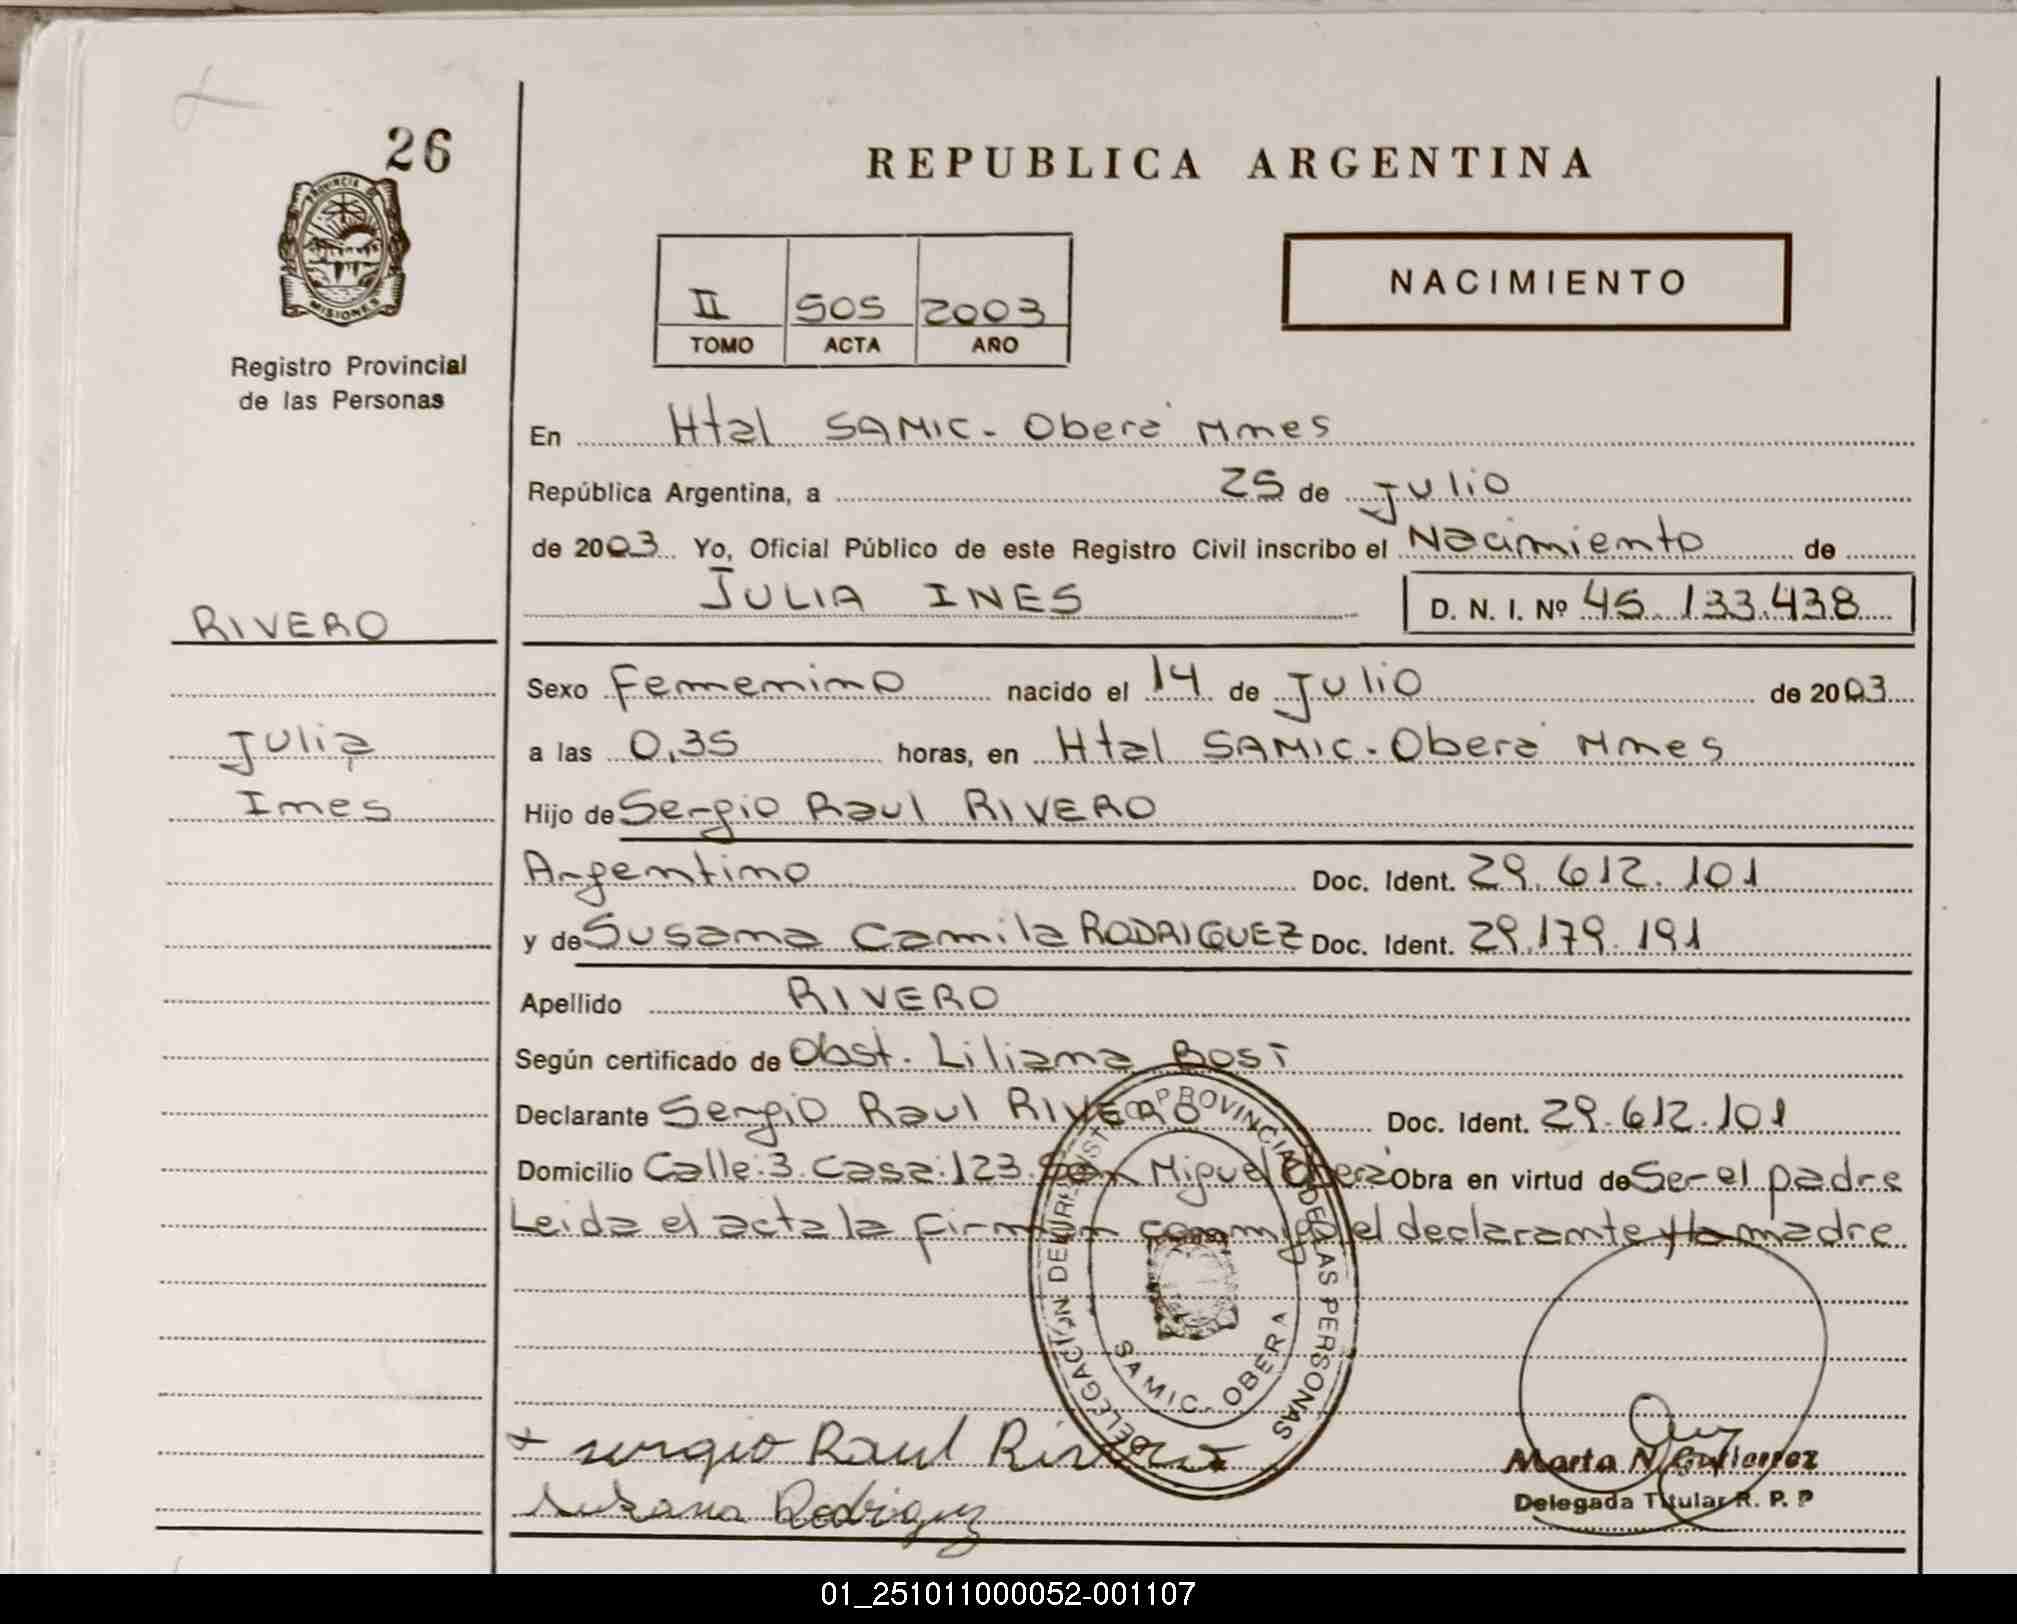 26
REPUBLICA ARGENTINA
PROVINCIA DE
MISIONES
II 505 2003
TOMO ACTA AÑO
NACIMIENTO
Registro Provincial
de las Personas
En Htal SAMIC - Oberá Mnes
República Argentina, a 25 de Julio
de 2003 Yo, Oficial Público de este Registro Civil inscribo el Nacimiento de
JULIA INES D. N. I. Nº 45.133.438
RIVERO
Julia
Ines
Sexo Femenino nacido el 14 de Julio de 2003
a las 0,35 horas, en Htal SAMIC - Oberá Mnes
Hijo de Sergio Raul RIVERO
Argentino Doc. Ident. 29.612.101
y de Susana Camila RODRIGUEZ Doc. Ident. 29.179.191
Apellido RIVERO
Según certificado de Obst. Liliana BOST
Declarante Sergio Raul RIVERO Doc. Ident. 29.612.101
Domicilio Calle: 3. Casa: 123. San Miguel Oberá Obra en virtud de Ser el padre
Leida el acta la firman conmigo el declarante y la madre
DELEGACIÓN DEL REGISTRO PROVINCIAL DE LAS PERSONAS
SAMIC - OBERA
+ Sergio Raul Rivero
Susana Rodriguez
Marta N. Gutierrez
Delegada Titular R. P. P
01_251011000052-001107